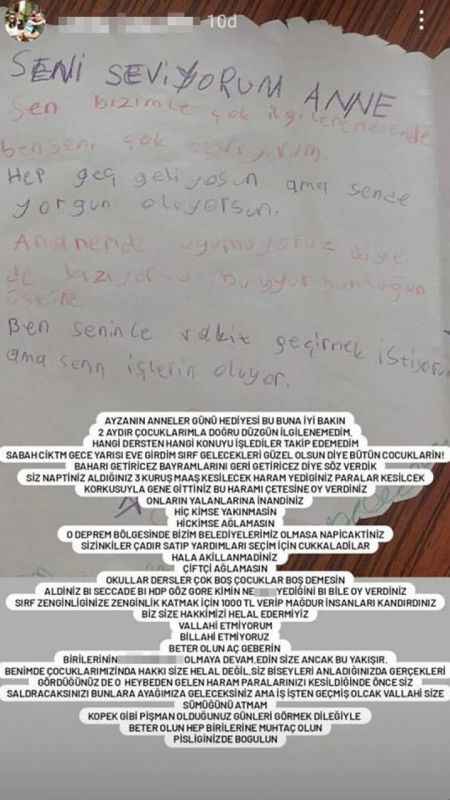 10d
SENİ SEVİYORUM ANNE
Sen bizimle çok ilgilenemesende
ben seni çok seviyorum.
Hep geç geliyosun ama sende
yorgun oluyorsun.
Ben seninle vakit geçirmek istiyorum
ama senn işlerin oluyor.
AYZANIN ANNELER GÜNÜ HEDİYESİ BU BUNA İYİ BAKIN
2 AYDIR ÇOCUKLARIMLA DOĞRU DÜZGÜN İLGİLENEMEDİM,
HANGİ DERSTEN HANGİ KONUYU İŞLEDİLER TAKİP EDEMEDİM
SABAH CİKTM GECE YARISI EVE GİRDİM SIRF GELECEKLERİ GÜZEL OLSUN DİYE BÜTÜN COCUKLARİN!
BAHARI GETİRİCEZ BAYRAMLARINI GERİ GETİRİCEZ DİYE SÖZ VERDİK
SİZ NAPTİNİZ ALDIĞINIZ 3 KURUŞ MAAŞ KESİLECEK HARAM YEDİĞİNİZ PARALAR KESİLCEK
KORKUSUYLA GENE GİTTİNİZ BU HARAMİ ÇETESİNE OY VERDİNİZ
ONLARIN YALANLARINA İNANDİNİZ
HİÇ KİMSE YAKINMASİN
HİCKİMSE AĞLAMASIN
O DEPREM BÖLGESİNDE BİZİM BELEDİYELERİMİZ OLMASA NAPİCAKTİNİZ
SİZİNKİLER ÇADIR SATIP YARDIMLARI SEÇİM İÇİN CUKKALADİLAR
HALA AKİLLANMADİNİZ
ÇİFTÇİ AĞLAMASIN
OKULLAR DERSLER ÇOK BOŞ ÇOCUKLAR BOŞ DEMESİN
ALDİNİZ BI SECCADE BI HDP GÖZ GORE KİMİN NE YEDİĞİNİ BI BİLE OY VERDİNİZ
SIRF ZENGİNLİGİNİZE ZENGİNLİK KATMAK İÇİN 1000 TL VERİP MAĞDUR İNSANLARI KANDIRDINIZ
BİZ SİZE HAKKİMİZİ HELAL EDERMİYİZ
VALLAHİ ETMİYORUM
BİLLAHİ ETMİYORUZ
BETER OLUN AÇ GEBERİN
BİRİLERİNİN OLMAYA DEVAM.EDİN SİZE ANCAK BU YAKIŞIR.
BENİMDE ÇOCUKLARIMIZINDA HAKKI SİZE HELAL DEĞİL,SİZ BİSEYLERİ ANLADIĞINIZDA GERÇEKLERİ
GÖRDÜĞÜNÜZ DE O HEYBEDEN GELEN HARAM PARALARINIZI KESİLDİĞİNDE ÖNCE SİZ
SALDRACAKSINIZI BUNLARA AYAĞIMIZA GELECEKSİNİZ AMA İŞ İŞTEN GEÇMİŞ OLCAK VALLAHİ SİZE
SÜMÜĞÜNÜ ATMAM
KOPEK GİBİ PİŞMAN OLDUĞUNUZ GÜNLERİ GÖRMEK DİLEĞİYLE
BETER OLUN HEP BİRİLERİNE MUHTAÇ OLUN
PİSLİGİNİZDE BOGULUN